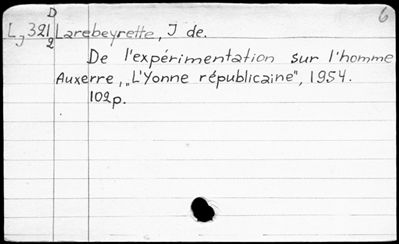 D
L,321 Larebeyrette, J de.
2
6
De l'expérimentation sur l'homme
Auxerre, „L'Yonne républicaine", 1954.
102p.